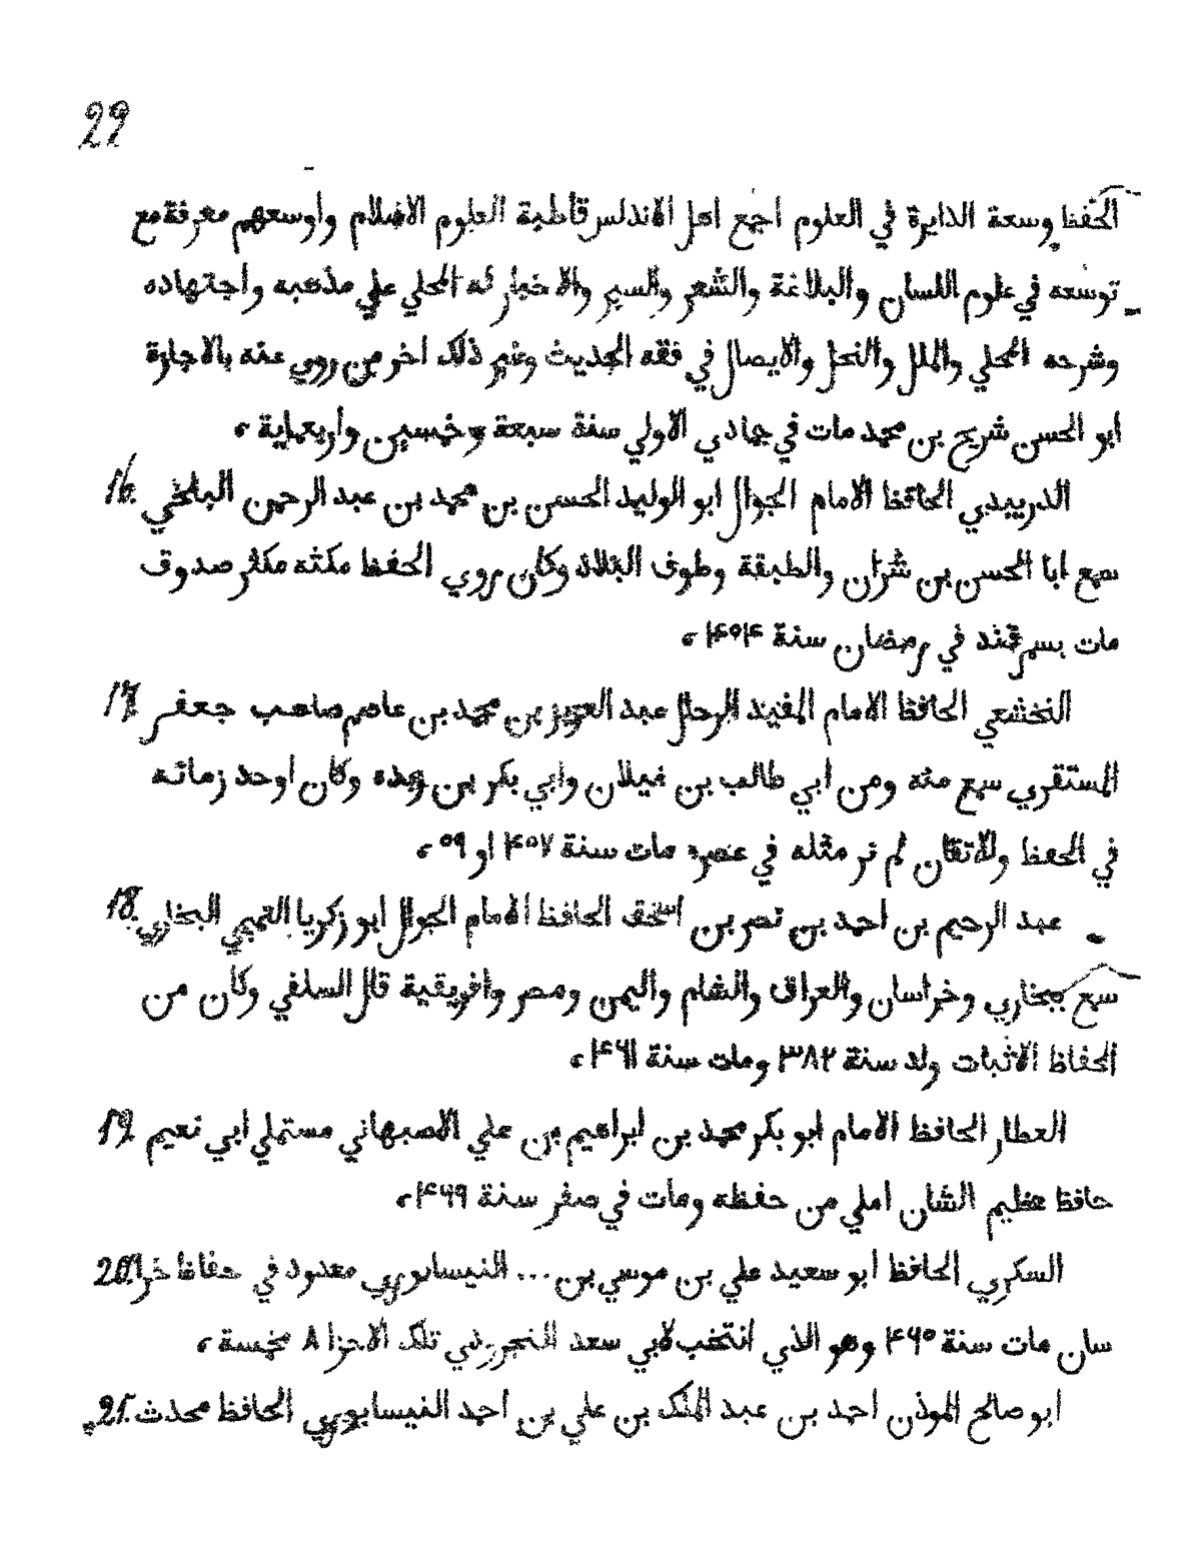 29
الحفظ وسعة الدايرة في العلوم اجمع اهل الاندلس قاطبة العلوم الاسلام واوسعهم معرفة مع
توسعه في علوم اللسان والبلاغة والشعر والسير والاخبار له المحلي علي مذهبه واجتهاده
وشرحه المحلي والملل والنحل والايصال في فقه الحديث وغير ذلك اخر من روي عنه بالاجازة
ابو الحسن شريح بن محمد مات في جمادي الاولي سنة سبعة وخمسين واربعماية ،
الدربيدي الحافظ الامام الجوال ابو الوليد الحسن بن محمد بن عبد الرحمن البلخي 16.
سمع ابا الحسن بن شران والطبقة وطوف البلاد وكان روي الحفظ مكثه مكثر صدوف
مات بسمرقند في رمضان سنة ۴۵۴ا ،
النخشعي الحافظ الامام المفيد الرحل عبد العزيز بن محمد بن عاصم صاحب جعفر 17.
المستقري سمع منه ومن ابي طالب بن غيلان وابي بكر بن وعده وكان اوحد زمانه
في الحفظ ولاتقان لم تر مثله في عصره مات سنة ۴۵۷ او ۵۹ ،
عبد الرحيم بن احمد بن نصر بن اسحق الحافظ الامام الجوال ابو زكريا التميمي البخاري 18.
سمع ببخاري وخراسان والعراق والشام واليمن ومصر وافريقية قال السلفي وكان من
الحفاظ الاثبات ولد سنة ۳۸۲ ومات سنة ۴۶۱ ،
العطار الحافظ الامام ابو بكر محمد بن ابراهيم بن علي الاصبهاني مستملي ابي نعيم 19.
حافظ عظيم الشان املي من حفظه ومات في صفر سنة ۴۶۹ ،
السكري الحافظ ابو سعيد علي بن موسي بن ... النيسابوري معدود في حفاظ خرا 20.
سان مات سنة ۴۶۵ وهو الذي انتخب لابي سعد النجروذي تلك الاجزا ۸ خمسة ،
ابو صالح الموذن احمد بن عبد الملك بن علي بن احمد النيسابوري الحافظ محدث 21.